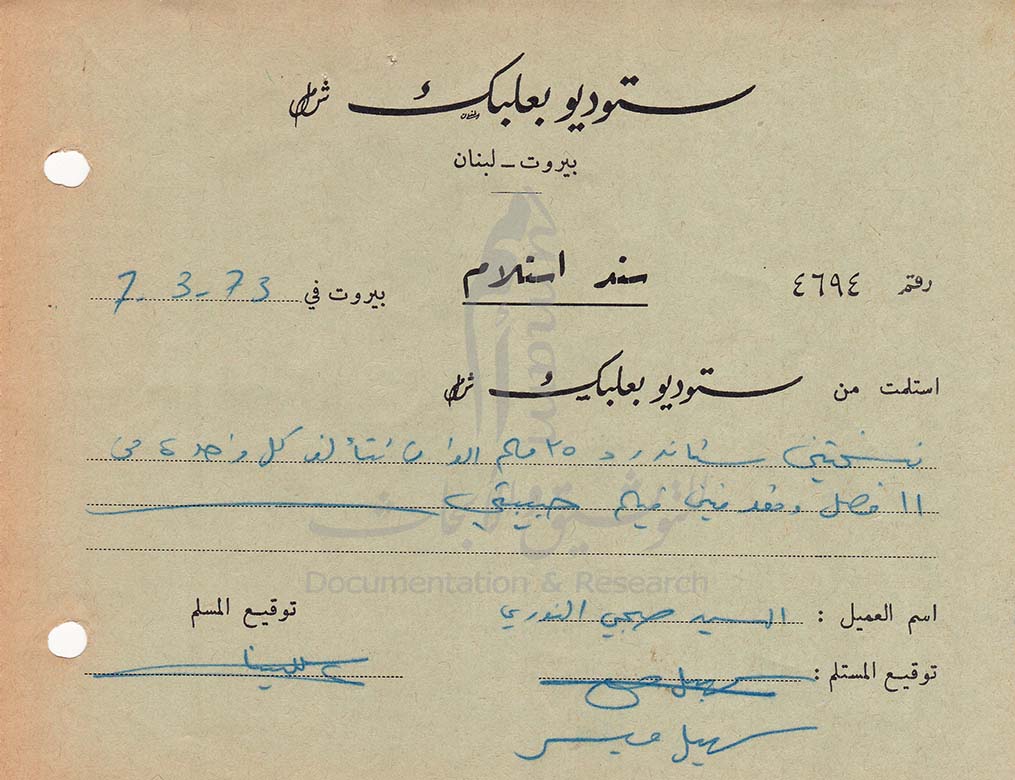 ستوديو بعلبك ش م ل
بيروت - لبنان
رقم ٤٦٩٤
سند استلام
بيروت في 7-3-73
استلمت من ستوديو بعلبك ش م ل
نسختين ستاندرد ٣٥ ملم الوان تتألف كل واحدة من
١١ فصل فيلم حبيبتي
اسم العميل : السيد صبحي النوري
توقيع المسلم
توقيع المستلم : سهيل
سهيل
umam
للتوثيق والأبحاث
Documentation & Research